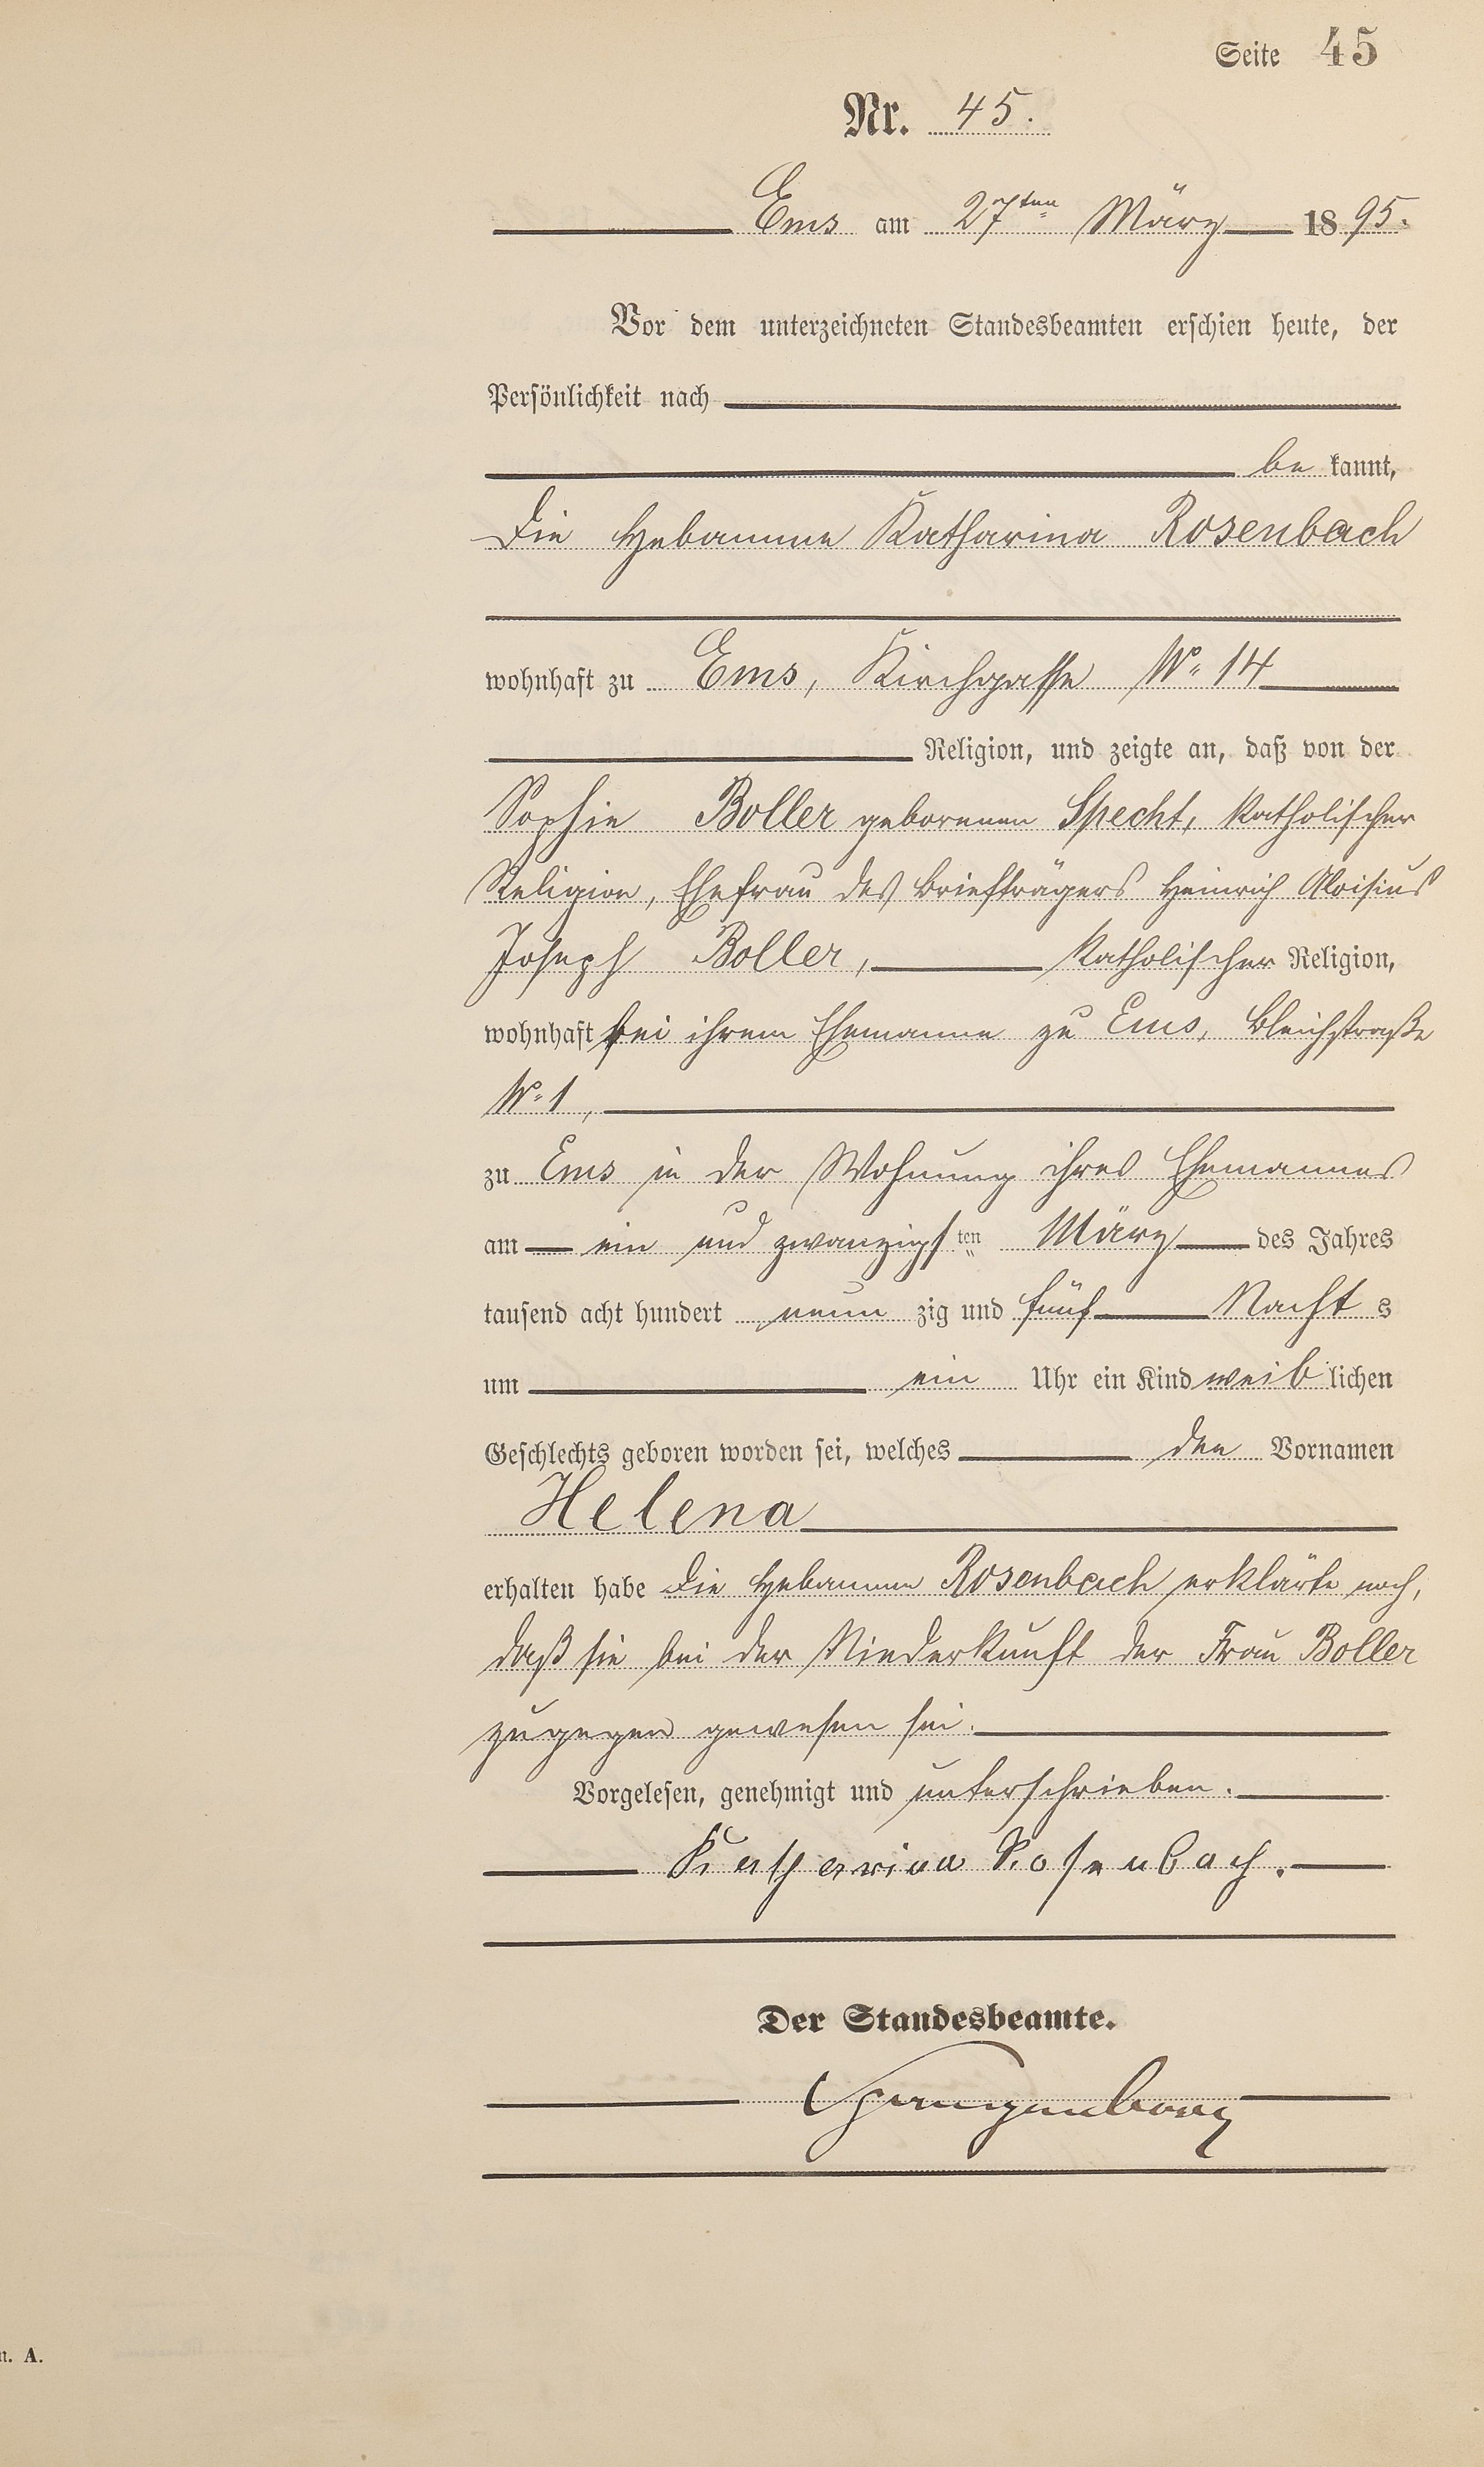 Seite 45
Nr. 45.
Ems am 27ten März 1895.
Vor dem unterzeichneten Standesbeamten erschien heute, der
Persönlichkeit nach
bekannt,
die Hebamme Katharina Rosenbach
wohnhaft zu Ems, Kirchgasse No 14
Religion, und zeigte an, daß von der
Sophie Boller geborenen Specht, katholischer
Religion, Ehefrau des Briefträgers Heinrich Aloisius
Joseph Boller, katholischer Religion,
wohnhaft bei ihrem Ehemanne zu Ems, Bleichstraße
No 1,
zu Ems in der Wohnung ihres Ehemannes
am ein und zwanzigsten März des Jahres
tausend acht hundert neunzig und fünf Nachts
um ein Uhr ein Kind weiblichen
Geschlechts geboren worden sei, welches den Vornamen
Helena
erhalten habe Die Hebamme Rosenbach erklärte noch,
daß sie bei der Niederkunft der Frau Boller
zugegen gewesen sei.
Vorgelesen, genehmigt und unterschrieben.
Katharina Rosenbach.
Der Standesbeamte.
Spangenberg
n. A.